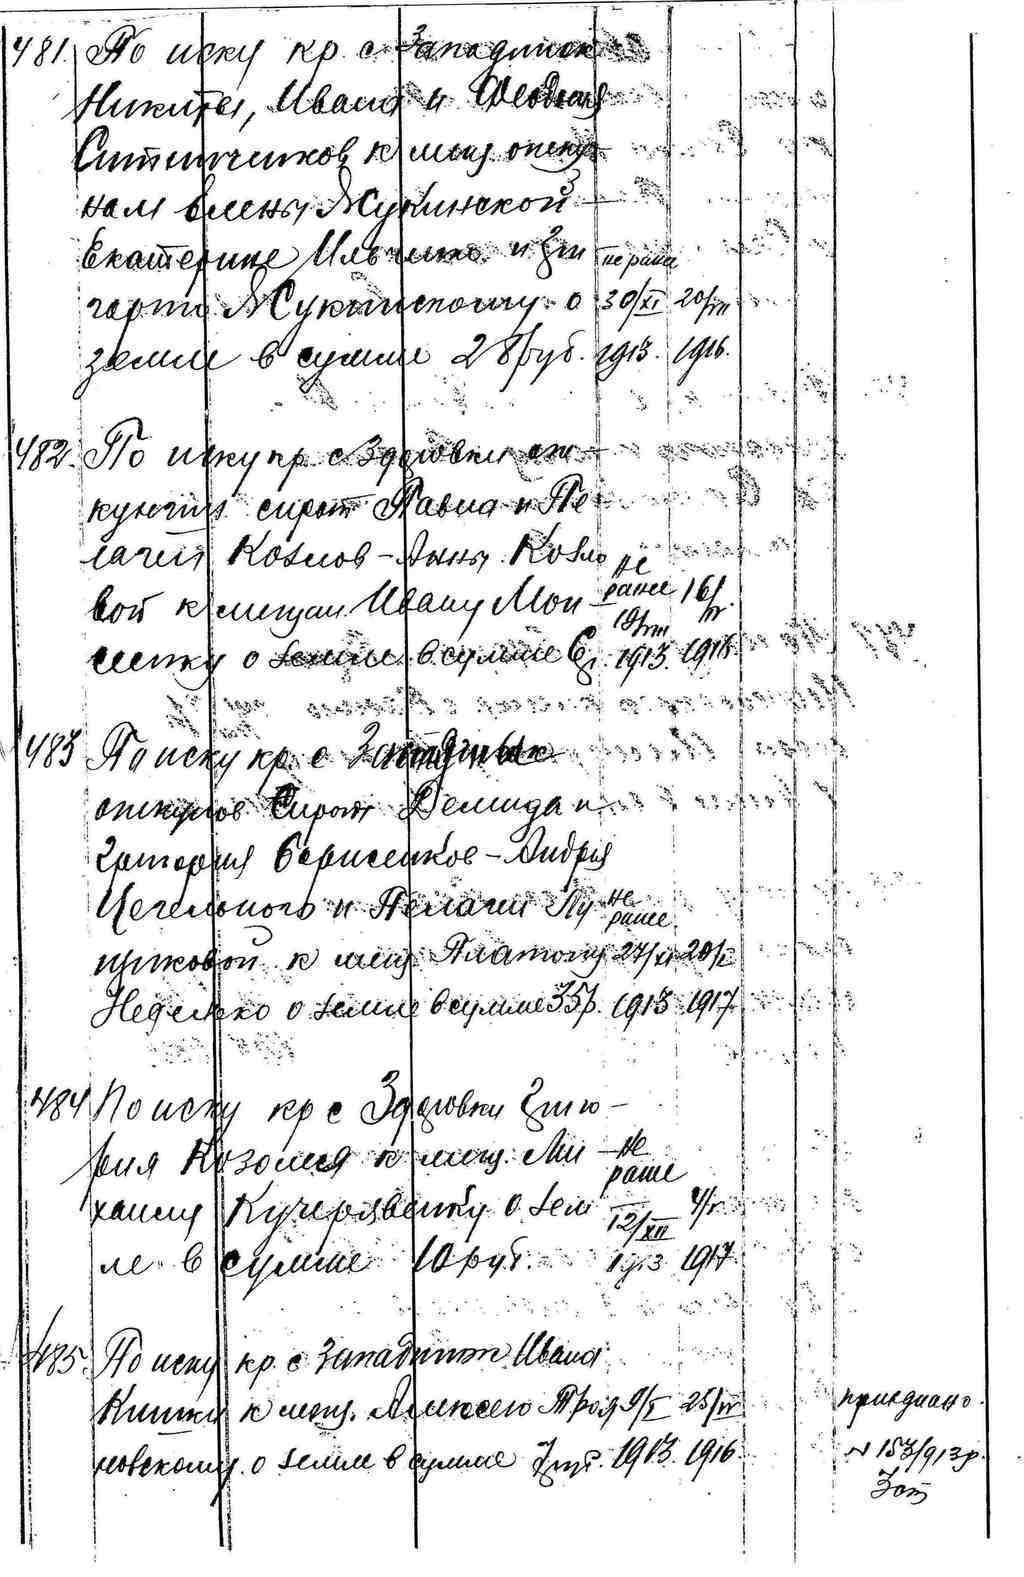 481. По иску кр. с. Западинок
Никиты, Ивана и Феодосия
к мещ. опеку-
нам Елены Жукинской
Екатерине Ильченко и Гри
горию Жукинскому о
земле в сумме 28 руб. не ранее 30/XI 1913. 1916.
482. По иску кр. с. Здоровки опе-
кунши сирот Павла и Пе-
лагеи Козлов - Анны Козло
вой к мещан. Ивану Мои
сеенку о земле в сумме не ранее 1913. 16/ 1916.
483 По иску кр. с.
опекунов сирот Демида и
Григория Борисенков - Андрея
Чечельного и Пелагеи Лу
щиковой к мещ. Платону
Неделько о земле в сумме 35 р. не ранее 27/XI 1913 20/I 1917.
484 По иску кр. с Здоровки Григо-
рия Козомея к мещ. Ми
хаилу Кучерявенку о зем
ле в сумме 10 руб. не ранее 12/XII 1913 1917.
485. По иску кр. с Западинок Ивана
Кишки к мещ. Алексею Троя
новскому о земле в сумме 9/I 1913. 25/IV 1916.
приєднано
N 153/913 р.